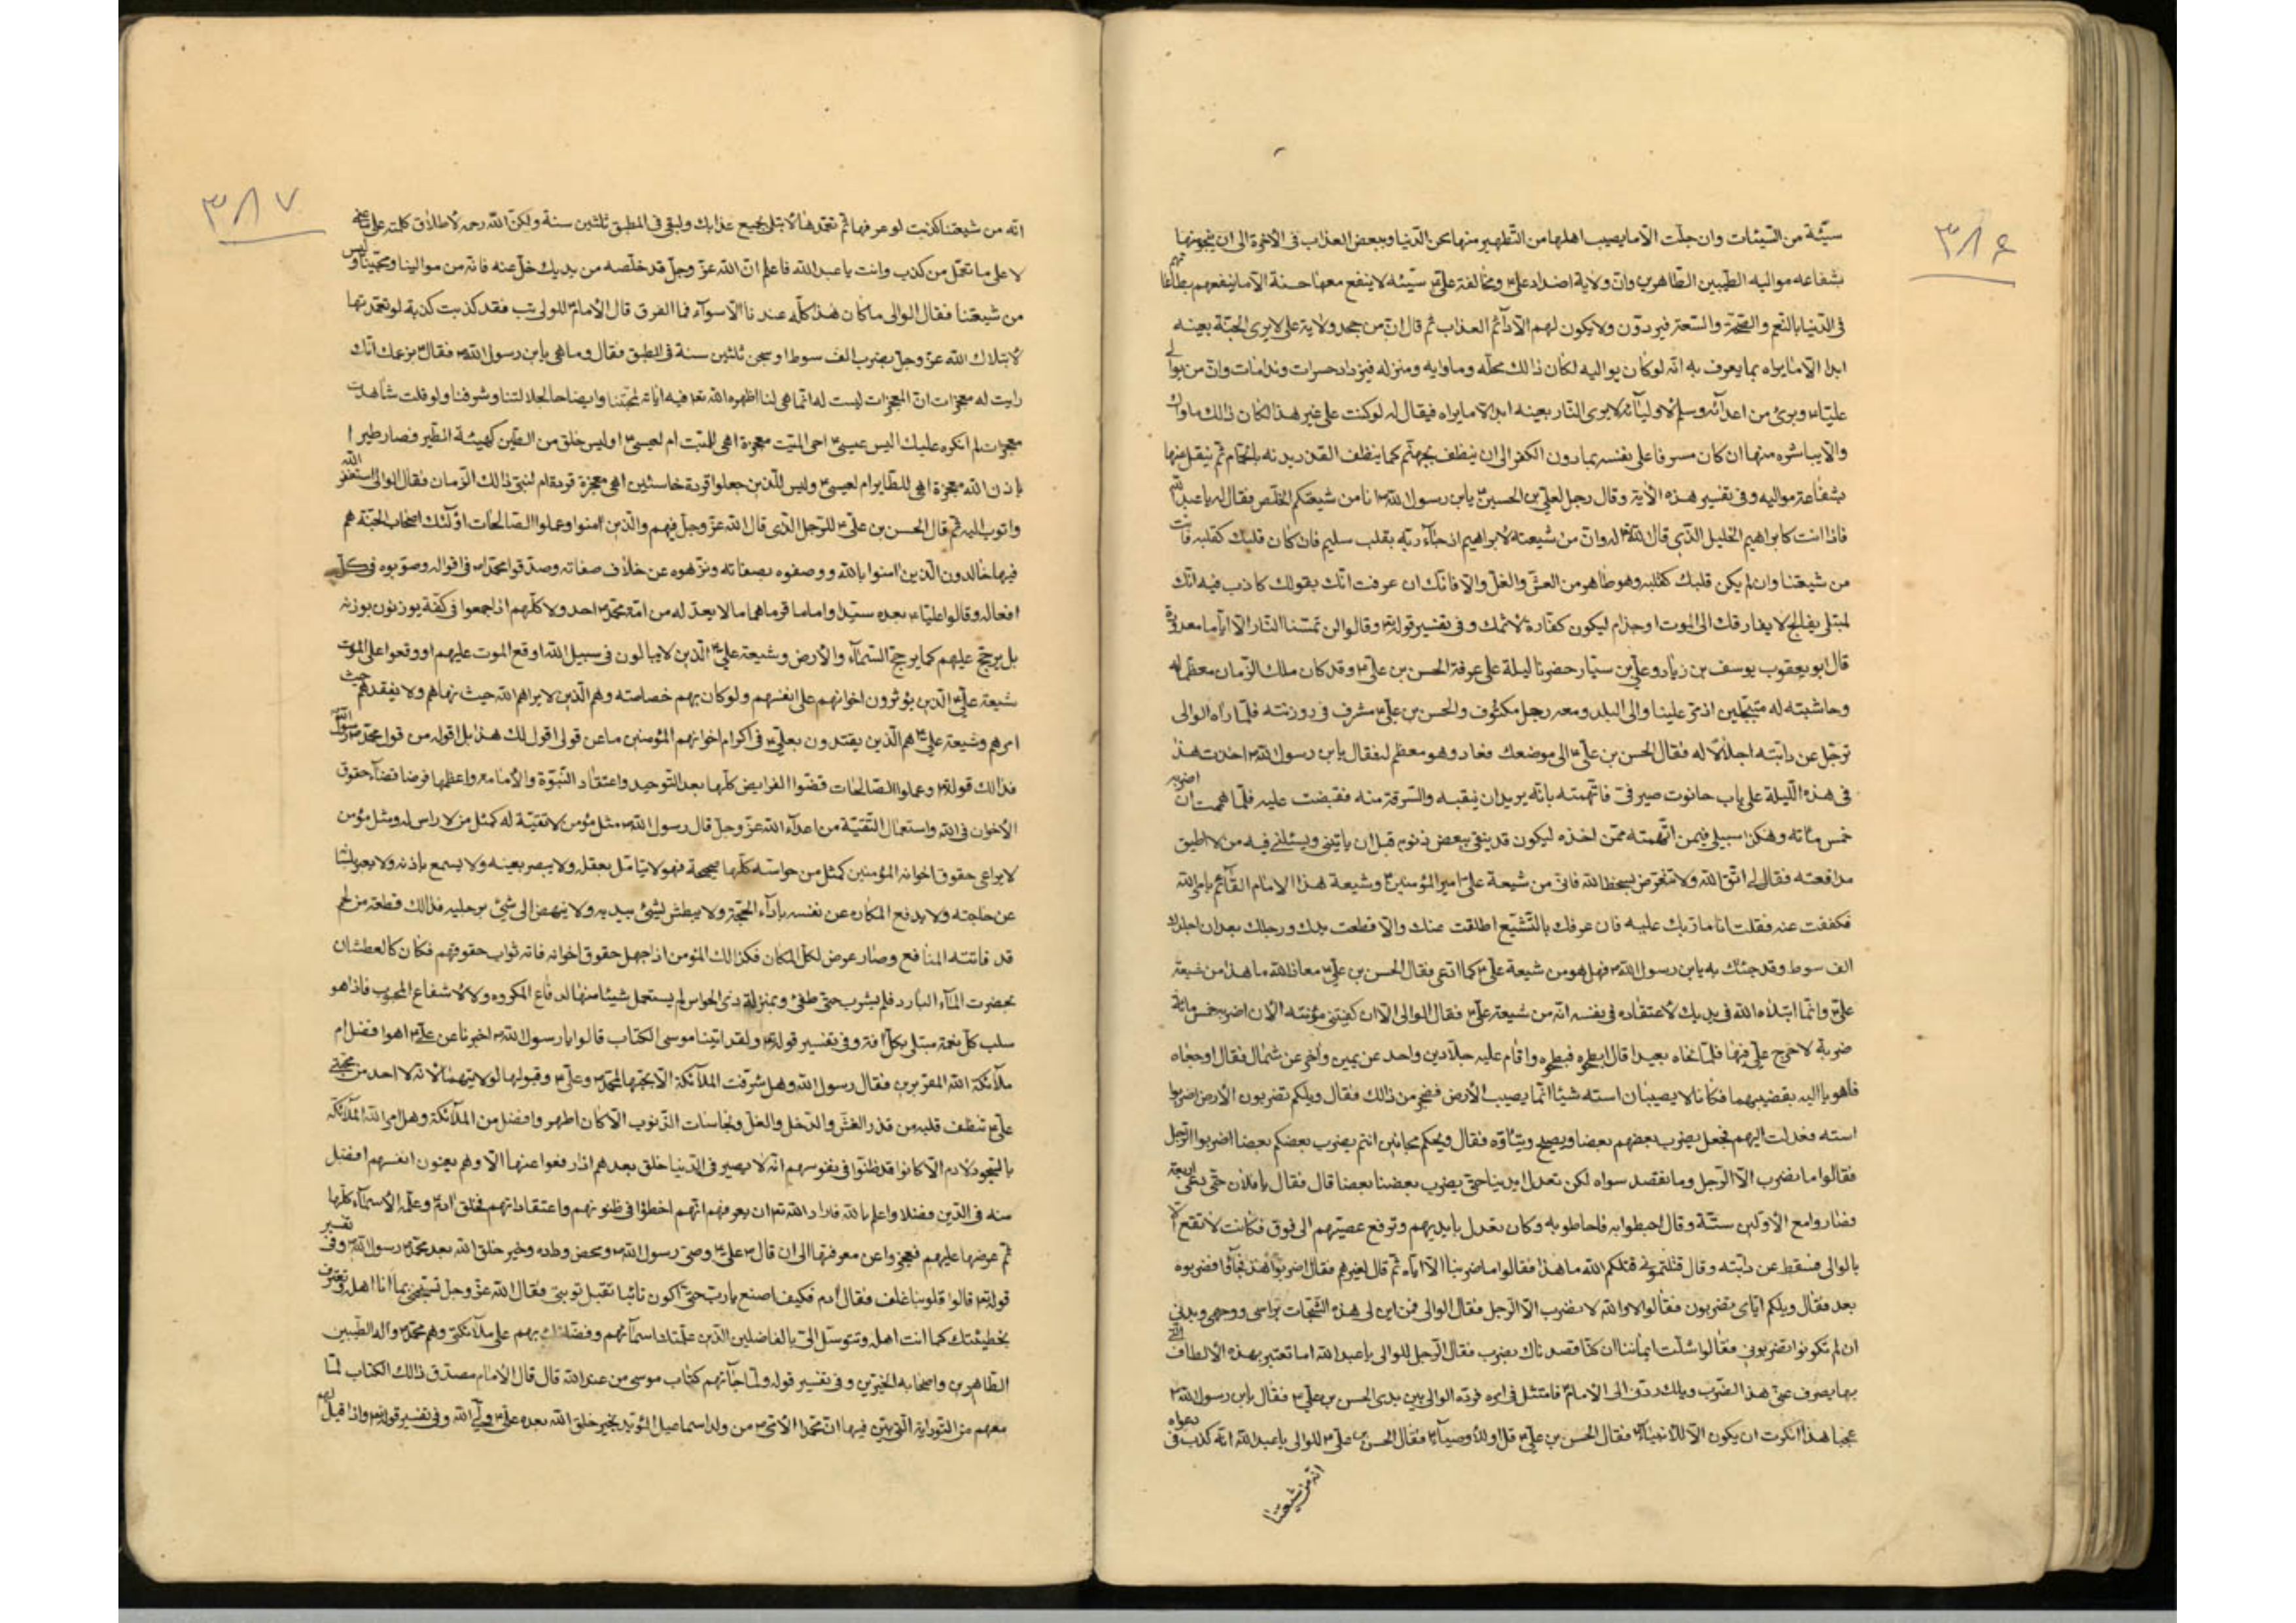 ٣٨٦
سيّئة من السّيئات وان جلّت الّا ما يصيب اهلها من التّطهير منها بمحن الدّنيا وببعض العذاب فى الاخرة الى ان ينجو منها
بشفاعه مواليه الطّيبين الطّاهرين وانّ ولاية اضداد علىّ ومخالفة علىّ سيّئه لا ينفع معها حسنة الّا ما ينفعهم بطاعاتهم
فى الدّنيا بالنّعم والصّحّة والسّعة فيردّون ولا يكون لهم الّا دآئم العذاب ثم قال انّ من جحد ولاية علىّ لا يرى الجنّة بعينه
ابدا الّا ما يراه بما يعرف به انّه لو كان يواليه لكان ذالك محلّه وماوايه ومنزله فيزداد حسرات وندامات وانّ من يوالى
عليّا وبرئ من اعدآئه وسلّم لاوليآئه لا يرى النّار بعينه ابدا الّا ما يراه فيقال له لو كنت على غير هذا لكان ذلك ماواك
والّا يباشره منها ان كان مسرفا على نفسه بما دون الكفر الى ان ينظف بجهنّم كما ينظف القذر بدنه بالحمّام ثم ينقل منها
بشفاعة مواليه وفى تفسير هذه الاية وقال رجل لعلىّ بن الحسين يابن رسول الله انا من شيعتكم الخلّص فقال له يا عبد الله
فاذا انت كابراهيم الخليل الّذى قال الله له وانّ من شيعته لابراهيم اذ جآء ربّه بقلب سليم فان كان قلبك كقلبه فانت
من شيعتنا وان لم يكن قلبك كقلبه وهو طاهر من الغشّ والغلّ والّا فانّك ان عرفت انّك بقولك كاذب فيه انّك
لمبتلى بفالج لا يفارقك الى الموت او جذام ليكون كفّارة لاثمك وفى تفسير قوله وقالوا لن تمسّنا النّار الّا ايّاما معدودة
قال ابو يعقوب يوسف بن زياد وعلىّ بن سيّار حضرنا ليلة على غرفة الحسن بن علىّ وقد كان ملك الزّمان معظّما له
وحاشيته له متبجّلين اذ مرّ علينا والى البلد ومعه رجل مكتوف والحسن بن علىّ مشرف فى روزنته فلمّا رآه الوالى
ترجّل عن دابّته اجلالا له فقال الحسن بن علىّ الى موضعك فعاد وهو معظم له فقال يابن رسول الله اخذت هذا
فى هذه اللّيلة على باب حانوت صيرفىّ فاتّهمته بانّه يريد ان ينقبه والسّرقة منه فقبضت عليه فلمّا هممت ان اضربه
خمس مائه وهكذا سبيلى فيمن اتّهمته ممّن اخذه ليكون قد ينقى ببعض ذنوبه قبل ان ياتينى ويسئلنى فيه من لا اطيق
مدافعته فقال لى اتّق الله ولا تتعرّض لسخط الله فانّى من شيعة علىّ امير المؤمنين وشيعة هذا الامام القآئم بامر الله
فكففت عنه فقلت انا مارّ بك عليه فان عرفك بالتّشيّع اطلقت عنك والّا قطعت يدك ورجلك بعد ان اجلدك
الف سوط وقد جئتك به يابن رسول الله فهل هو من شيعة علىّ كما ادّعى فقال الحسن بن علىّ معاذ الله ما هذا من شيعة
علىّ وانّما ابتلاه الله فى يديك لاعتقاده فى نفسه انّه من شيعة علىّ فقال الوالى الان كفيتنى مؤنته الان اضربه خمس مائة
ضربة لا حرج علىّ فيها فلمّا نحّاه بعيدا قال ابطحوه فبطحوه واقام عليه جلّادين واحد عن يمين واخر عن شمال فقال اوجعاه
فاهويا اليه بقضيبهما فكانا لا يصيبان استه شيئا انّما يصيب الارض فضجر من ذالك فقال ويلكم تضربون الارض اضربوا
استه فعدلت اليهم فجعل يضرب بعضهم بعضا ويصيح ويتأوّه فقال ويحكم مجانين انتم يضرب بعضكم بعضا اضربوا الرّجل
فقالوا ما نضرب الّا الرّجل وما نقصد سواه لكن تعدل ايدينا حتّى يضرب بعضنا بعضا قال فقال يا فلان حتّى دعى اربعة
وصاروا مع الاوّلين ستّة وقال احيطوا به فاحاطوا به وكان يعدل بايديهم وترفع عصيّهم الى فوق فكانت لا تقع الّا
بالوالى فسقط عن دابّته وقال قتلتمونى قتلكم الله ما هذا فقالوا ما ضربنا الّا ايّاه ثم قال لغيرهم فقال اضربوا هذا فجآؤا فضربوه
بعد فقال ويلكم ايّاى تضربون فقالوا لا والله لا نضرب الّا الرجل فقال الوالى فمن اين لى هذه الشّجّات براسى ووجهى وبدنى
ان لم تكونوا تضربونى فقالوا شلّت ايماننا ان كنّا قصدناك بضرب فقال الرّجل للوالى يا عبد الله اما تعتبر بهذه الالطاف الّتى
بها يصرف عنّى هذا الضّرب ويلك ردّنى الى الامام فامتثل فى امره فردّه الوالى بين يدى الحسن بن علىّ فقال يابن رسول الله
عجبا هذا انكرت ان يكون الّا للانبيآء فقال الحسن بن علىّ قل او للاوصيآء فقال الحسن بن علىّ للوالى يا عبد الله انّه كذب فى دعواه
انّه من شيعتنا
٣٨٧
انّه من شيعتنا كذبت لو عرفها ثم تعمّدها لابتلى بجميع عذابك ولبقى فى المطبق ثلثين سنة ولكنّ الله رحمه لاطلاق كلمته على ما عنى
لا على ما تعمّل من كذب وانت يا عبد الله فاعلم انّ الله عزّ وجلّ قد خلّصه من يديك خلّ عنه فانّه من موالينا ومحبّينا وليس
من شيعتنا فقال الوالى ما كان هذا كلّه عندنا الّا سوآء فما الفرق قال الامام للوالى يثب فقد كذبت كذبة لو تعمّدتها
لابتلاك الله عزّ وجلّ بضرب الف سوط او سجن ثلثين سنة فى المطبق فقال وما هى يابن رسول الله فقال بزعمك انّك
رايت له معجزات انّ المعجزات ليست له انّما هى لنا اظهره الله تعا فيه اياته لحجّتنا وايضاحا لجلالتنا وشرفنا ولو قلت شاهدت
معجزات لم انكره عليك اليس عيسى احى الميّت معجزة اهى للميّت ام لعيسى اوليس خلق من الطّين كهيئة الطّير فصار طيرا
باذن الله معجزة اهى للطّاير ام لعيسى وليس للّذين جعلوا قردة خاسئين اهى معجزة قردة ام لنبىّ ذالك الزّمان فقال الوالى استغفر الله
واتوب اليه ثم قال الحسن بن علىّ للرّجل الّذى قال الله عزّ وجلّ فيهم والّذين امنوا وعملوا الصّالحات اولئك اصحاب الجنّة هم
فيها خالدون الّذين امنوا بالله ووصفوه بصفاته ونزّهوه عن خلاف صفاته وصدّقوا محمّدا فى اقواله وصوّبوه فى كلّ
افعاله وقالوا عليّا بعده سيّدا واماما قرما هما ما لا يعدله من امّة محمّد احد ولا كلّهم اذا جمعوا فى كفّة يوزنون بوزنه
بل يرجح عليهم كما يرجح السّمآء والارض وشيعة علىّ الّذين لا يبالون فى سبيل الله اوقع الموت عليهم او وقعوا على الموت
شيعة علىّ الّذين يؤثرون اخوانهم على انفسهم ولو كان بهم خصاصته وهم الّذين لا يراهم الله حيث نهاهم ولا يفقدهم حيث
امرهم وشيعة علىّ هم الّذين يقتدون بعلىّ فى اكرام اخوانهم المؤمنين ما عن قولى اقول لك هذا بل اقوله من قول محمّد رسول الله
فذالك قوله وعملوا الصّالحات قضوا الفرايض كلّها بعد التّوحيد واعتقاد النّبوّة والامامه واعظمها فرضا قضآء حقوق
الاخوان فى الله واستعمال التّقيّة من اعدآء الله عزّ وجلّ قال رسول الله مثل مؤمن لا تقيّة له كمثل من لا راس له ومثل مؤمن
لا يراعى حقوق اخوانه المؤمنين كمثل من حواسّه كلّها صحيحة فهو لا يتامّل بعقله ولا يبصر بعينه ولا يسمع باذنه ولا يعبر بلسانه
عن حاجته ولا يدفع المكاره عن نفسه بادآء الحجّة ولا يبطش لشئ بيديه ولا ينهض الى شئ برجليه فذالك قطعة من لحم
قد فاتته المنافع وصار عرض لكلّ المكان فكذالك المؤمن اذا جهل حقوق اخوانه فانه ثواب حقوقهم فكان كالعطشان
بحضرت المآء البارد فلم يشرب حتّى طفئ وبمنزلة ذى الحواس لم يستعمل شيئا منها لدفاع المكروه ولا لاشفاع المحبوب فاذا هو
سلب كلّ نعمة مبتلى بكلّ افة وفى تفسير قوله ولقد اتينا موسى الكتاب قالوا يا رسول الله اخبرنا عن علىّ اهو افضل ام
ملآئكة الله المقرّبين فقال رسول الله وهل شرّفت الملآئكة الّا بحبّها لمحمّد وعلىّ وقبولها لولايتهما لانّه لا احد من محبّى
علىّ تنظف قلبه من قذر الغشّ والدّخل والغلّ ونجاسات الذّنوب الّا كان اطهر وافضل من الملآئكة وهل امر الله الملآئكة
بالسّجود لادم الّا كانوا قد ظنّوا فى نفوسهم انّه لا يصير فى الدّنيا خلق بعدهم اذا رفعوا عنها الّا وهم يعنون انفسهم افضل
منه فى الدّين وفضلا واعلم بالله فاراد الله تعا ان يعرفهم انّهم اخطؤا فى ظنونهم واعتقاداتهم فخلق ادم وعلّمه الاسمآء كلّها
ثم عرضها عليهم فعجزوا عن معرفتها الى ان قال علىّ وصىّ رسول الله ومحض وداده وخير خلق الله بعد محمّد رسول الله وفى تفسير
قوله قالوا قلوبنا غلف فقال ادم فكيف اصنع يا ربّ حتّى اكون تائبا تقبل توبتى فقال الله عزّ وجلّ تسبّحنى بما انا اهله وتعترف
بخطيئتك كما انت اهله وتتوسّل الىّ بالفاضلين الّذين علّمتك اسمآئهم وفضّلتك بهم على ملآئكتى وهم محمّد واله الطّيبين
الطّاهرين واصحابه الخيّرين وفى تفسير قوله ولمّا جآئهم كتاب موسى من عند الله قال قال الامام مصدّق ذالك الكتاب لما
معهم من التّوراية الّتى بيّن فيها انّ محمّدا الامّى من ولد اسماعيل المؤيّد بخير خلق الله بعده علىّ ولىّ الله وفى تفسير قوله واذا قيل لهم